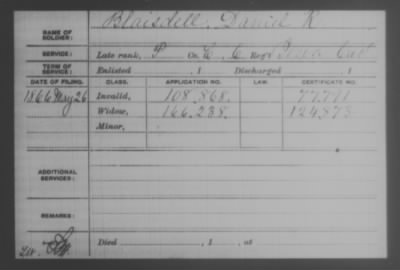 NAME OF SOLDIER: Blaisdell, Daniel R.
SERVICE: Late rank, P Co. C, 6 Reg't Cal.
TERM OF SERVICE: Enlisted , 1 Discharged , 1
DATE OF FILING. CLASS. APPLICATION NO. LAW. CERTIFICATE NO.
1866 May 26 Invalid, 108.868.
Widow, 166.238. 124.873
Minor,
ADDITIONAL SERVICES:
REMARKS:
Died , 1 , at